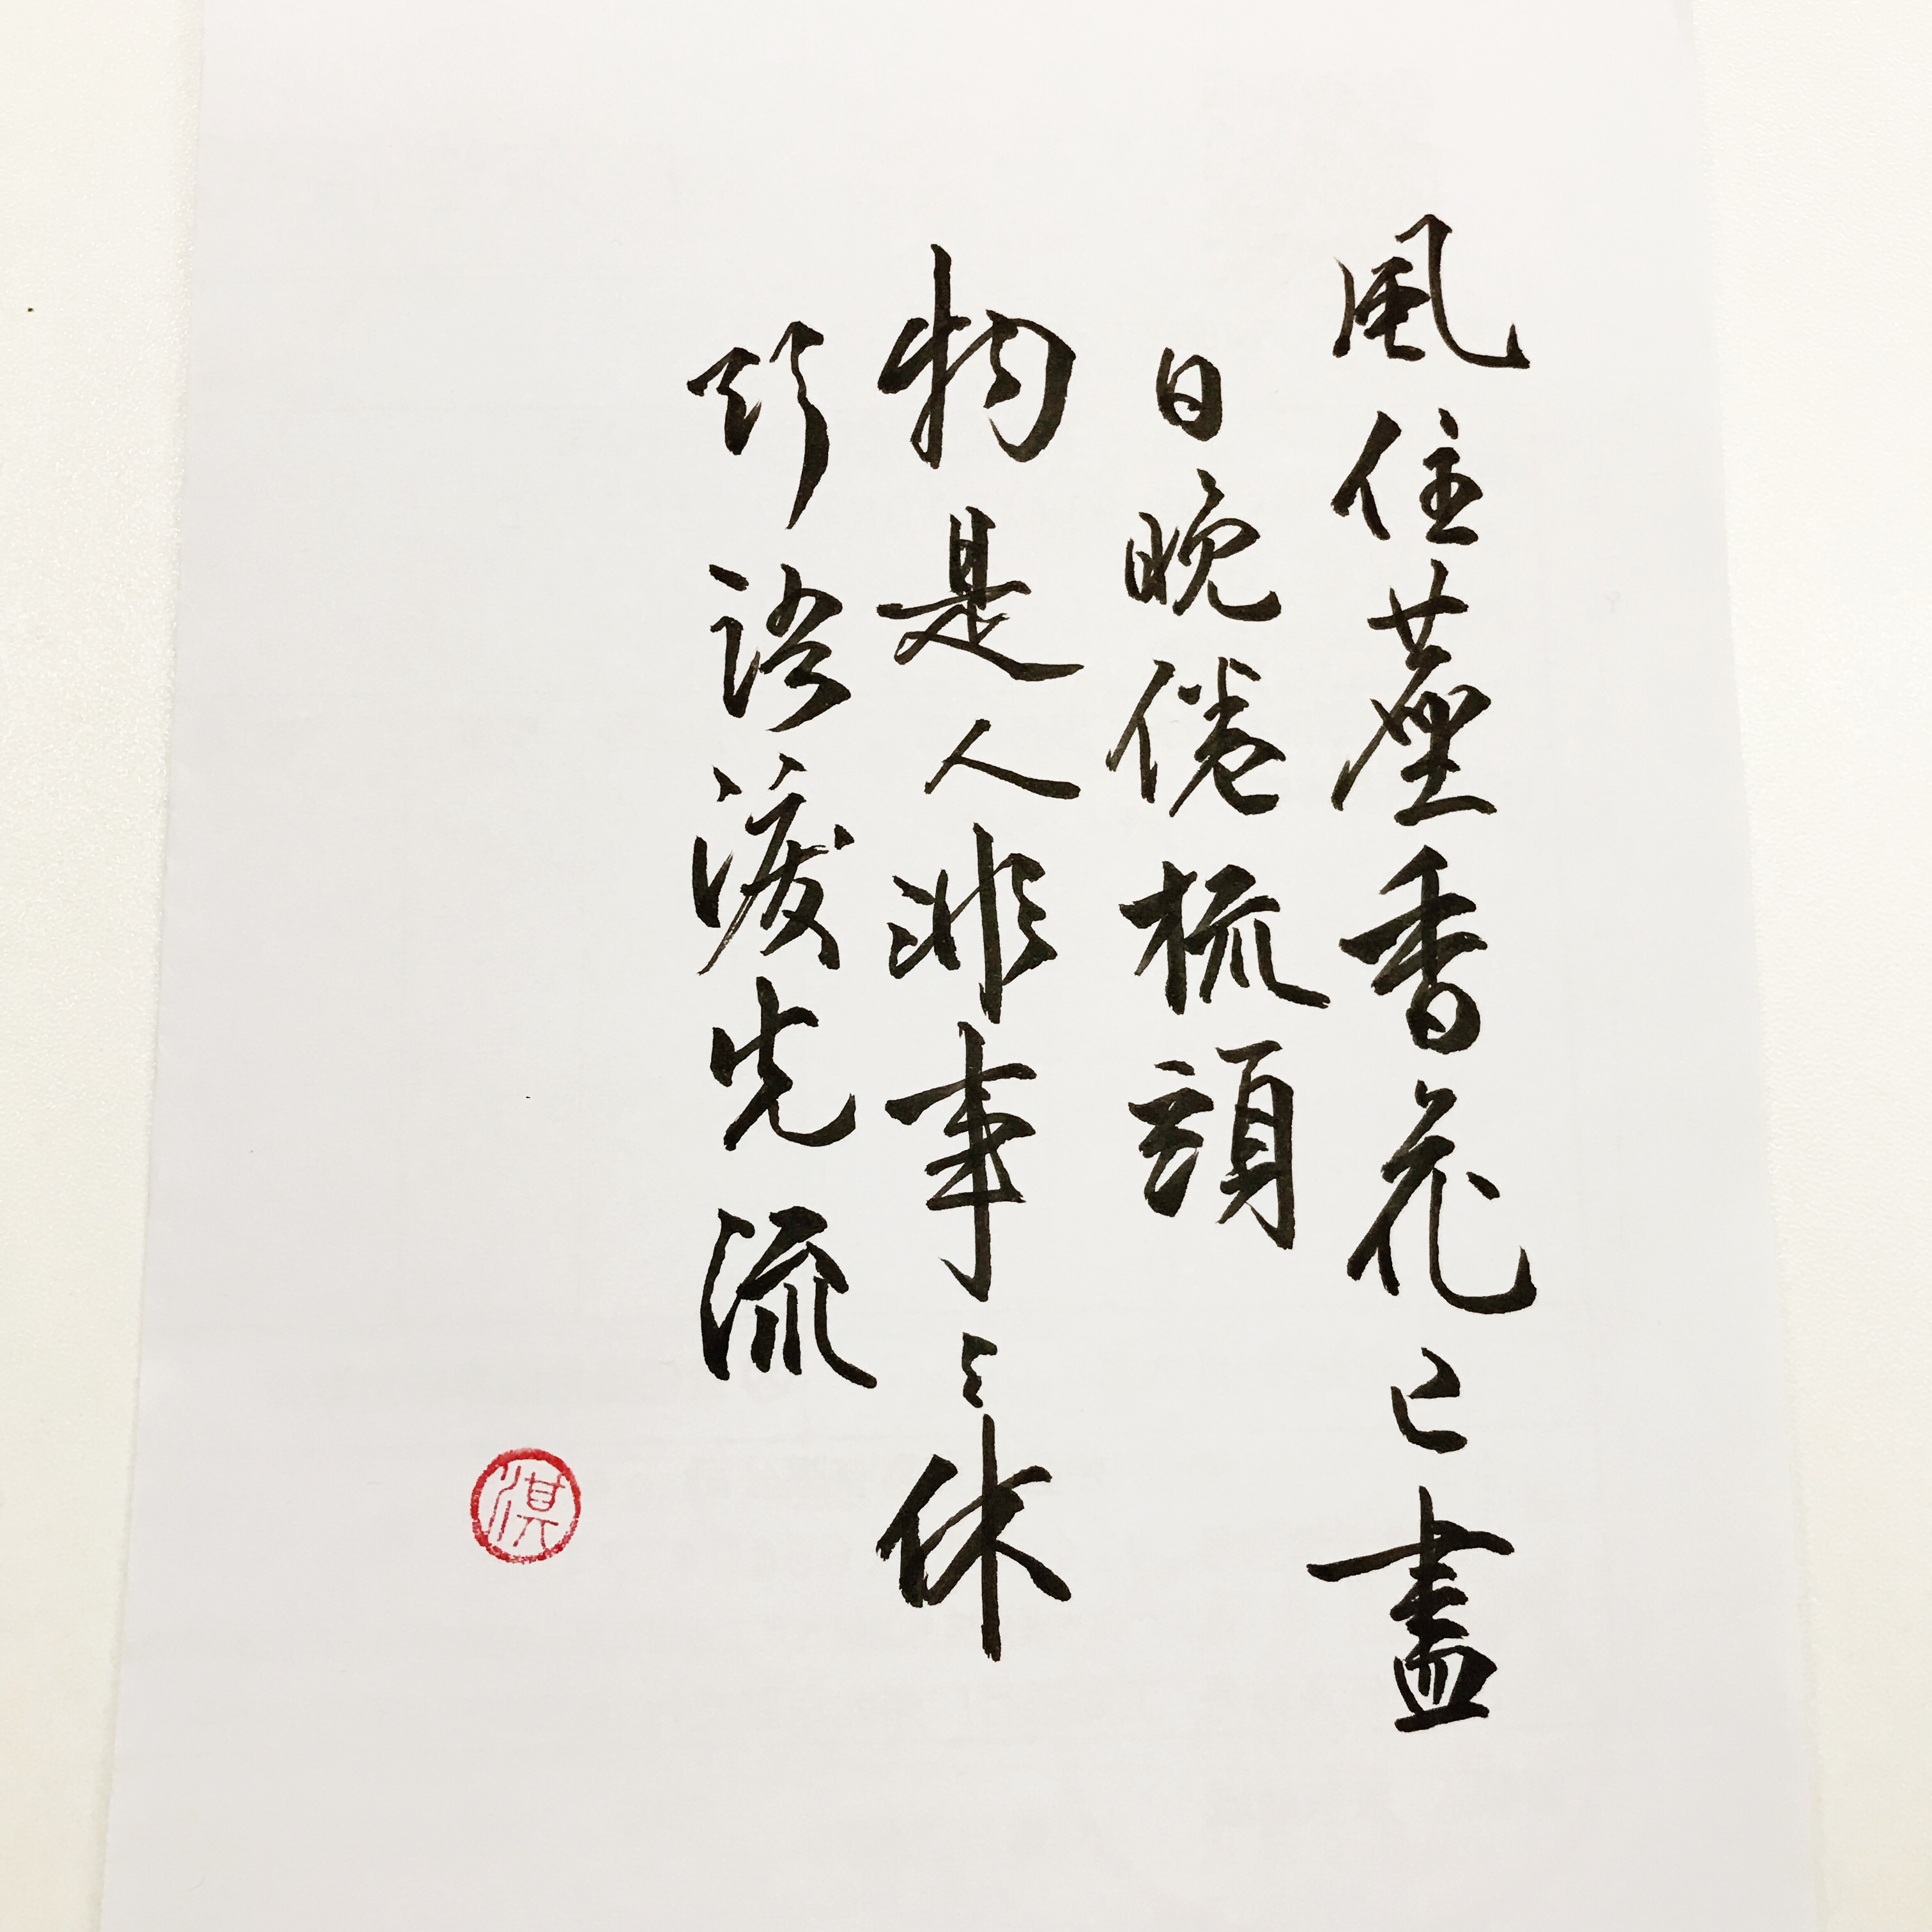 風住塵香花已盡
日晚倦梳頭
物是人非事〻休
欲語淚先流
淇